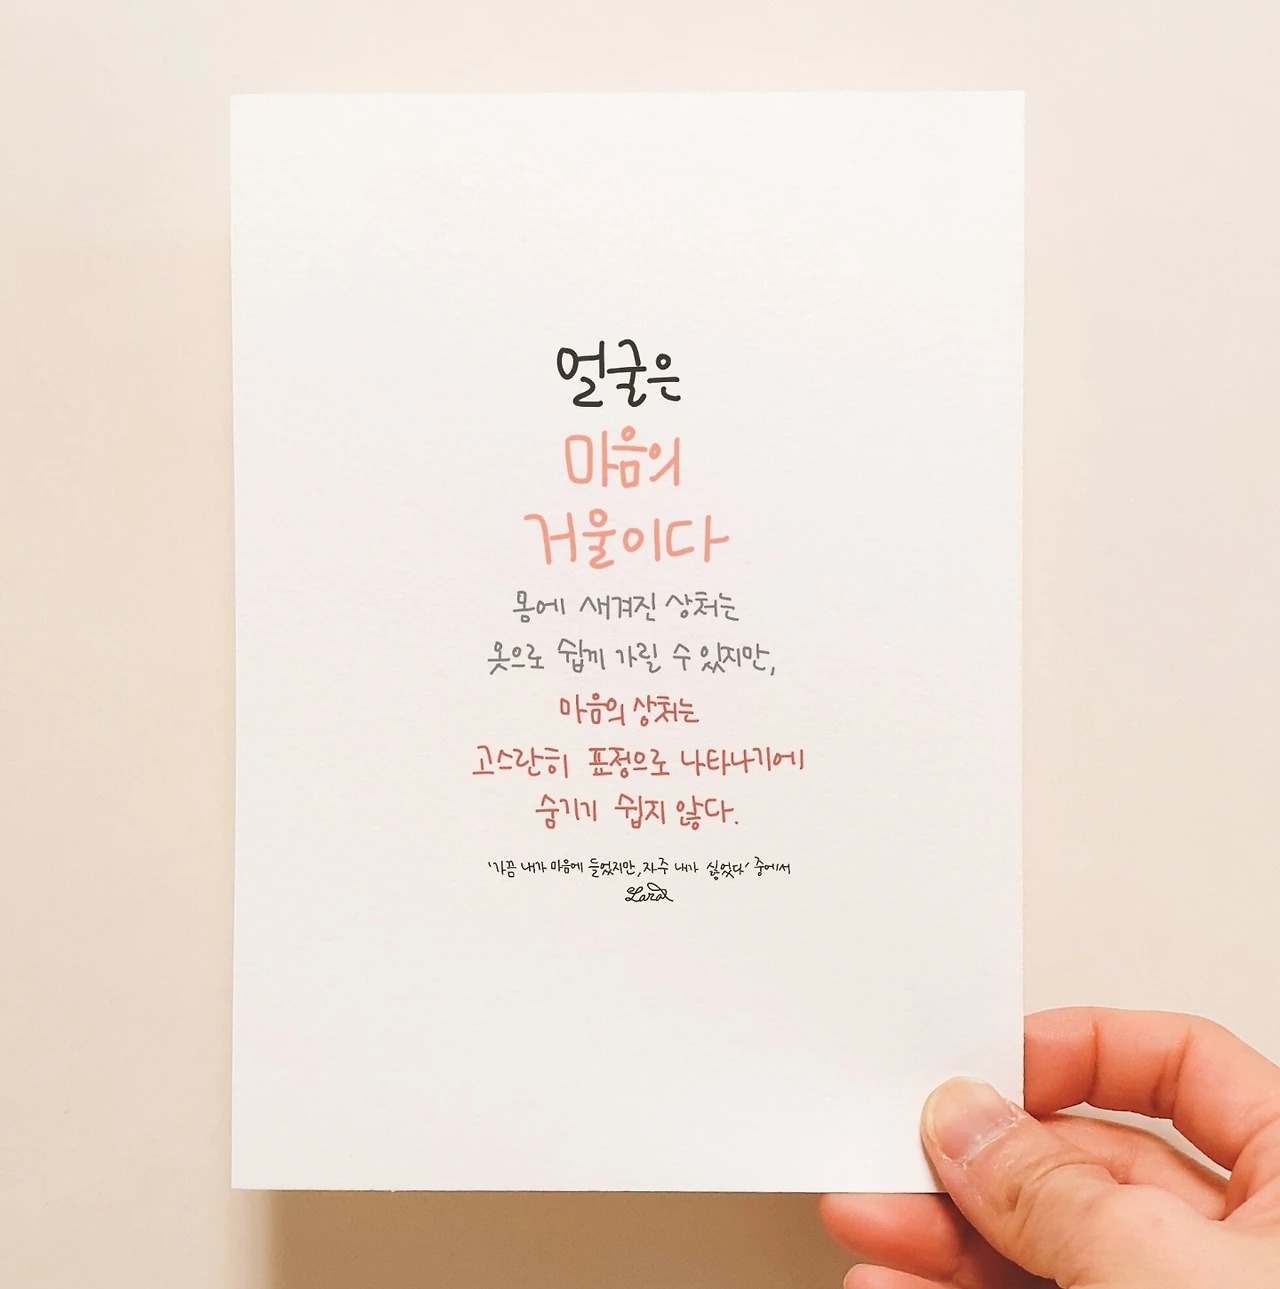 얼굴은
마음의
거울이다
몸에 새겨진 상처는
옷으로 쉽게 가릴 수 있지만,
마음의 상처는
고스란히 표정으로 나타나기에
숨기기 쉽지 않다.
'가끔 내가 마음에 들었지만, 자주 내가 싫었다' 중에서
Lara